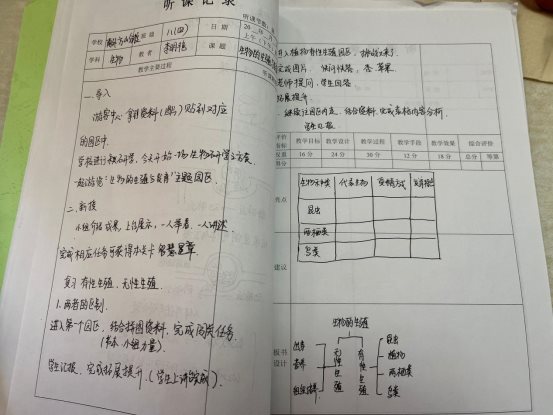 听课记录
学校
班级
八(四)
日期
学科 生物 教者
课题
教学主要过程
一、导入
游客中心 拿错资料(图) 贴到对应
的园区中.
学校进行教研日常,今天开始一场生物研学之方案.
一起游览"生物的生殖与发育"主题园区.
二、新授
小组介绍成果,上台展示,一人举卷,一人讲述.
完成相应任务可获得本关卡智慧星章.
复习 有性生殖、无性生殖.
1、两者的区别.
进入第一个园区,结合拼图资料,完成闯关任务.
(书本、小组力量).
学生汇报、完成拓展提升.(学生上讲台完成)
植物有性生殖园区,挑战又来了.
完成图片, 快问快答,
老师提问,学生回答.
拓展提升.
继续往园区内走,结合资料,完成表格内容分析.
学生汇报.
评价指标 教学目标 教学设计 教学过程 教学手段 教学效果 综合评价
权重 16分 24分 30分 12分 18分 总分 等第
得分
亮点
生物种类 代表生物 受精方式 发育
昆虫
两栖类
鸟类
建议
板书设计
生物的生殖
出芽
营养
组织培养
无性生殖
有性生殖
昆虫
植物
两栖类
鸟类